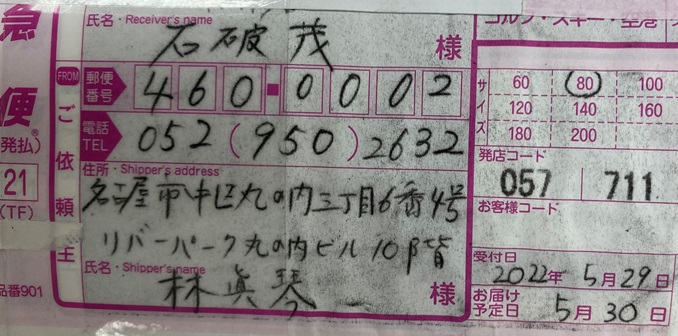 急
便
発払)
21
(TF)
品番901
氏名・Receiver's name
石破茂 様
FROM
ご依頼主
郵便番号 460-0002
電話 TEL 052 (950) 2632
住所・Shipper's address
名古屋市中区丸の内三丁目6番4号
リバーパーク丸の内ビル10階
氏名・Shipper's name
林眞琴 様
ゴルフ・スキー・空港
サイズ
60 80 100
120 140 160
180 200
発店コード
057 711
お客様コード
受付日 2022年 5月29日
お届け予定日 5月30日